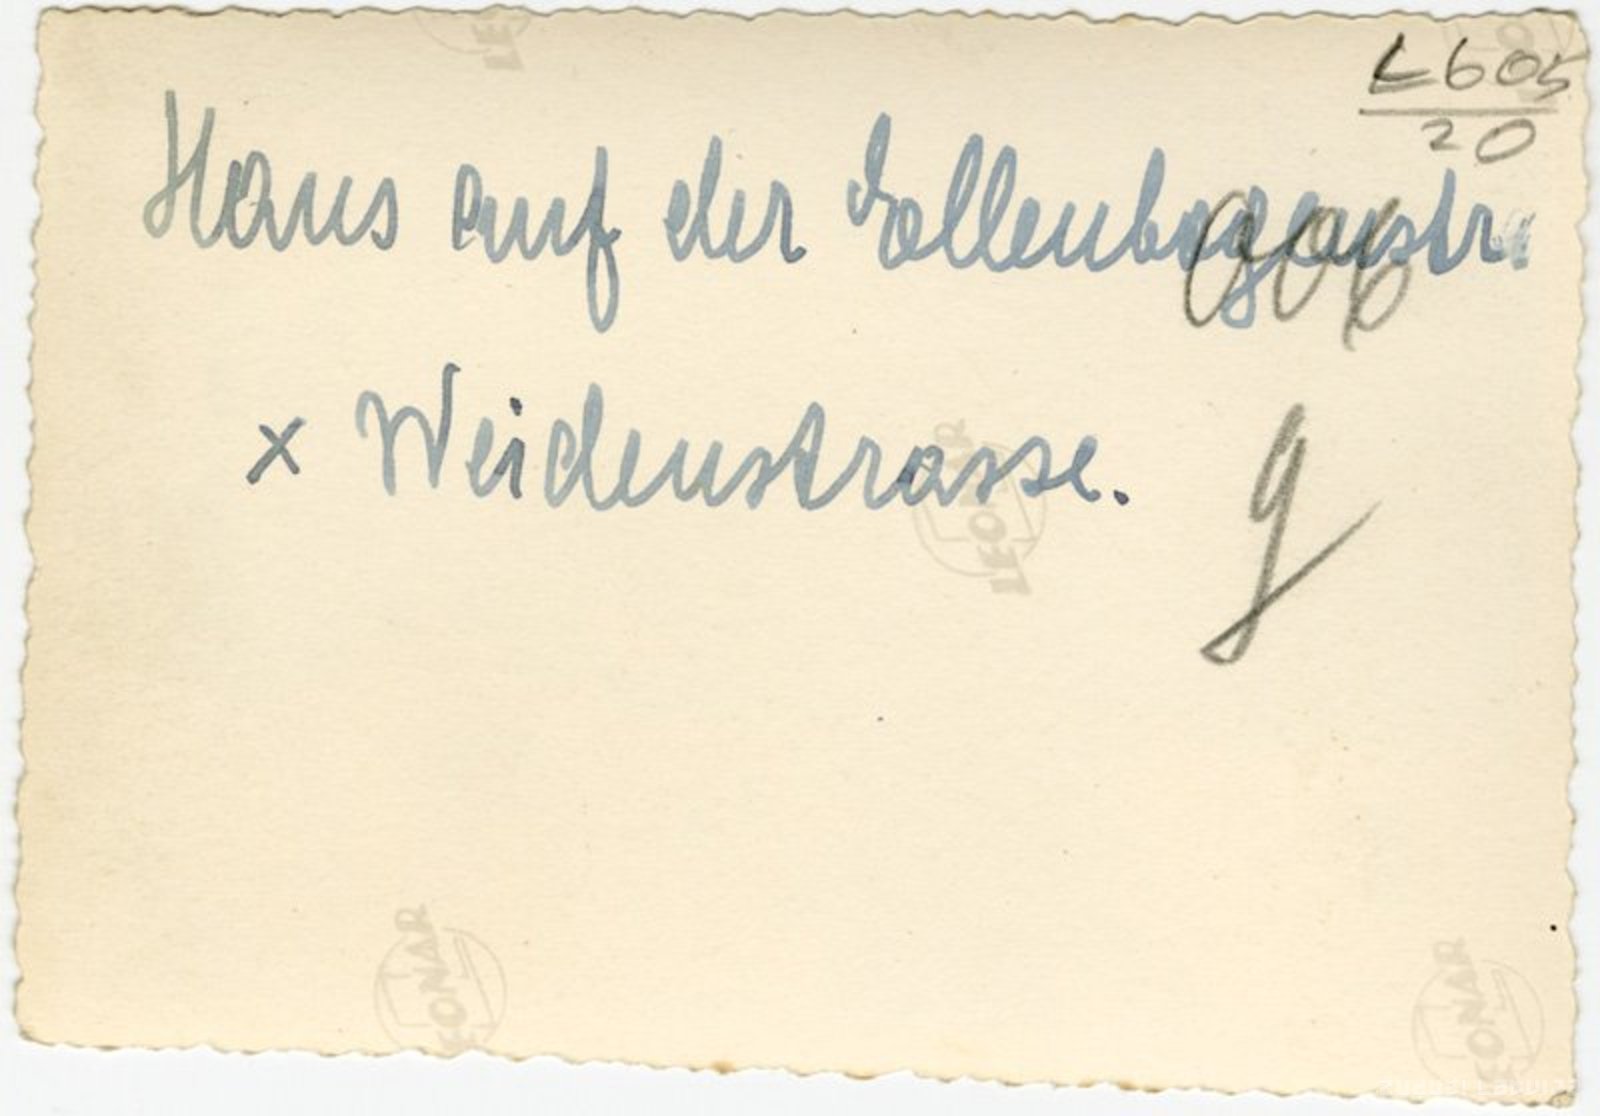 L605
20
Haus auf der Ellenbogenstr.
006
x Weidenstrasse.
g
LEONAR
LEONAR
LEONAR